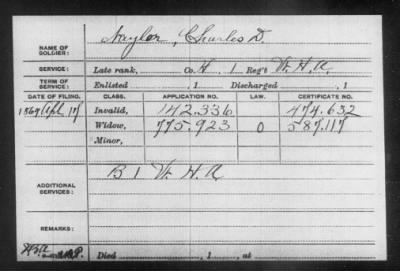 NAME OF SOLDIER: Naylor, Charles D.
SERVICE: Late rank, Co. H, 1 Reg't Vt. H. A.
TERM OF SERVICE: Enlisted , 1 Discharged , 1
DATE OF FILING. CLASS. APPLICATION NO. LAW. CERTIFICATE NO.
1869 Apl 17 Invalid, 142.336 474.632
Widow, 775.923 O 587.117
Minor,
ADDITIONAL SERVICES: B 1 Vt H A
REMARKS:
Died , 1 , at